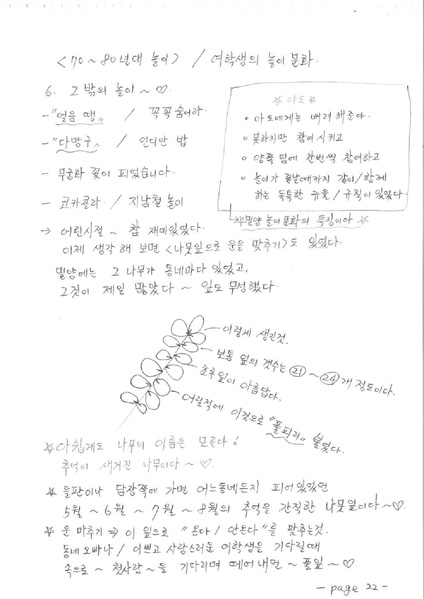 <70~80년대 놀이> / 여학생의 놀이 문화.
6. 그 밖의 놀이 ~ ♡
- "얼음 땡" / 꼭꼭 숨어라.
- "다망구" / 인디안 밥
- 무궁화 꽃이 피었습니다.
- 코카콜라 / 지남철 놀이
☆ 아도 ☆
• 아도에게는 배려 해준다.
• 못하지만 참여 시키고
• 양쪽 팀에 한번씩 참여하고
• 놀이가 끝날때까지 같이/함께
하는 독특한 규율/규칙이 있었다.
☆밀양 놀이문화의 특징이다☆
→ 어린시절 ~ 참 재미있었다.
이제 생각 해 보면 <나뭇잎으로 운을 맞추기>도 있었다.
밀양에는 그 나무가 동네마다 있었고,
그것이 제일 많았다 ~ 잎도 무성했다.
이렇게 생긴것.
보통 잎의 갯수는 21 ~ 24 개 정도이다.
초록잎이 아름답다.
어릴적에 이것으로 "풀피리" 불었다.
☆ 아쉽게도 나무의 이름은 모른다!
추억이 새겨진 나무이다 ~ ♡
☆ 들판이나 담장쪽에 가면 어느동네든지 피어있었던
5월 ~ 6월 ~ 7월 ~ 8월의 추억을 간직한 나뭇잎이다 ~ ♡
☆ 운 마추기 ⇒ 이 잎으로 "온다/안온다"를 맞추는것.
동네 오빠나 / 이쁘고 사랑스러운 여학생을 기다릴때
속으로 ~ 첫사랑 ~ 을 기다리며 떼어내던 ~ 풀잎 ~ ♡
- page 22 -